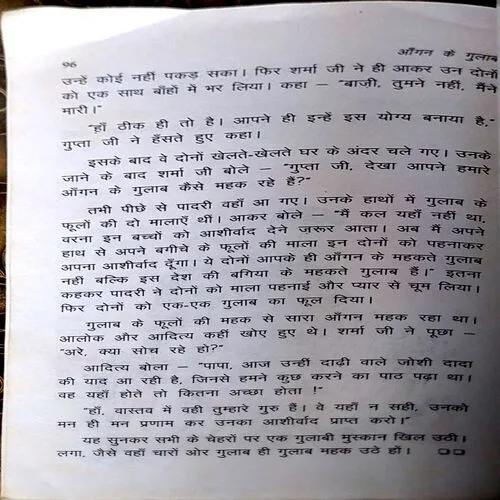 96
आँगन के गुलाब
उन्हें कोई नहीं पकड़ सका। फिर शर्मा जी ने ही आकर उन दोनों
को एक साथ बाँहों में भर लिया। कहा – "बाज़ी, तुमने नहीं, मैंने
मारी।"
"हाँ ठीक ही तो है। आपने ही इन्हें इस योग्य बनाया है,"
गुप्ता जी ने हँसते हुए कहा।
इसके बाद वे दोनों खेलते-खेलते घर के अंदर चले गए। उनके
जाने के बाद शर्मा जी बोले – "गुप्ता जी, देखा आपने हमारे
आँगन के गुलाब कैसे महक रहे हैं?"
तभी पीछे से पादरी वहाँ आ गए। उनके हाथों में गुलाब के
फूलों की दो मालाएँ थीं। आकर बोले – "मैं कल यहाँ नहीं था,
वरना इन बच्चों को आशीर्वाद देने ज़रूर आता। अब मैं अपने
हाथ से अपने बगीचे के फूलों की माला इन दोनों को पहनाकर
अपना आशीर्वाद दूँगा। ये दोनों आपके ही आँगन के महकते गुलाब
नहीं बल्कि इस देश की बगिया के महकते गुलाब हैं।" इतना
कहकर पादरी ने दोनों को माला पहनाई और प्यार से चूम लिया।
फिर दोनों को एक-एक गुलाब का फूल दिया।
गुलाब के फूलों की महक से सारा आँगन महक रहा था।
आलोक और आदित्य कहीं खोए हुए थे। शर्मा जी ने पूछा –
"अरे, क्या सोच रहे हो?"
आदित्य बोला – "पापा, आज उन्हीं दाढ़ी वाले जोशी दादा
की याद आ रही है, जिनसे हमने कुछ करने का पाठ पढ़ा था।
वह यहाँ होते तो कितना अच्छा होता !"
"हाँ, वास्तव में वही तुम्हारे गुरु हैं। वे यहाँ न सही, उनको
मन ही मन प्रणाम कर उनका आशीर्वाद प्राप्त करो।"
यह सुनकर सभी के चेहरों पर एक गुलाबी मुस्कान खिल उठी।
लगा, जैसे वहाँ चारों ओर गुलाब ही गुलाब महक उठे हों।